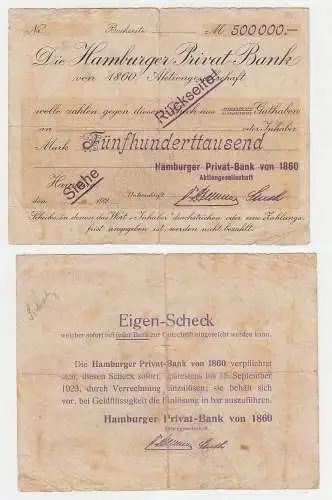 No. Buchseite M. 500 000.—
Die Hamburger Privat-Bank
von 1860, Aktiengesellschaft
wolle zahlen gegen diesen Scheck aus Guthaben
an oder Inhaber
Mark Fünfhunderttausend
Siehe Rückseite!
Hamburger Privat-Bank von 1860
Aktiengesellschaft
den 192
Unterschrift
Schecks, in denen das Wort „Inhaber“ durchstrichen oder eine Zahlungs-
frist angegeben ist, werden nicht bezahlt.
Eigen-Scheck
welcher sofort bei jeder Bank zur Gutschrift eingereicht werden kann.
Die Hamburger Privat-Bank von 1860 verpflichtet
sich, diesen Scheck sofort, spätestens bis 15. September
1923, durch Verrechnung einzulösen; sie behält sich
vor, bei Geldflüssigkeit die Einlösung in bar auszuführen.
Hamburger Privat-Bank von 1860
Aktiengesellschaft.